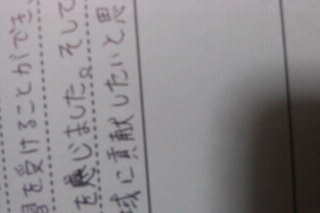 習を受けることができ、
を感じました。そして
域に貢献したいと思